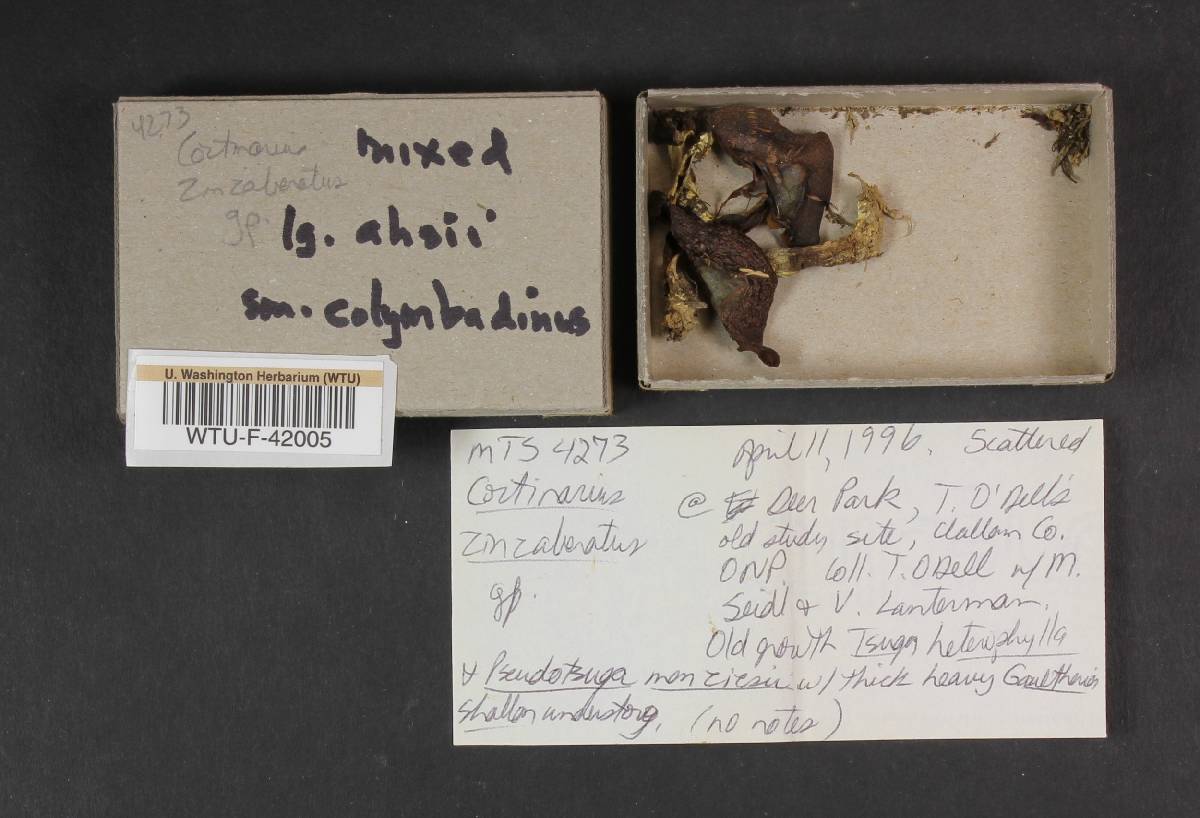 4273
Cortinarius
Zinzaberatus
gp.
mixed
lg. ahsii
sm. colymbadinus
U. Washington Herbarium (WTU)
WTU-F-42005
MTS 4273
Cortinarius
Zinzaberatus
gp.
April 11, 1996. Scattered
@ Deer Park, T. O'Dell's
old study site, Clallam Co.
ONP. Coll. T. O'Dell w/ M.
Seidl & V. Lanterman.
Old growth Tsuga heterophylla
& Pseudotsuga menziesii w/ thick heavy Gaultheria
shallon understory. (no notes)